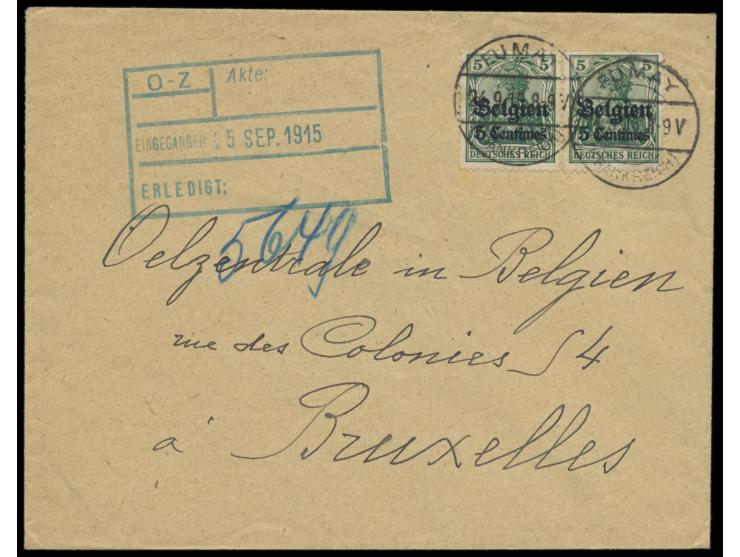 O-Z Akte:
EINGEGANGEN 25 SEP. 1915
ERLEDIGT:
FUMAY
FUMAY
5 5
5 5
9V
Belgien
Belgien
5 Centimes
5 Centimes
DEUTSCHES REICH
DEUTSCHES REICH
(FRANKREICH)
5649
Oelzentrale in Belgien
rue des Colonies 54
à Bruxelles